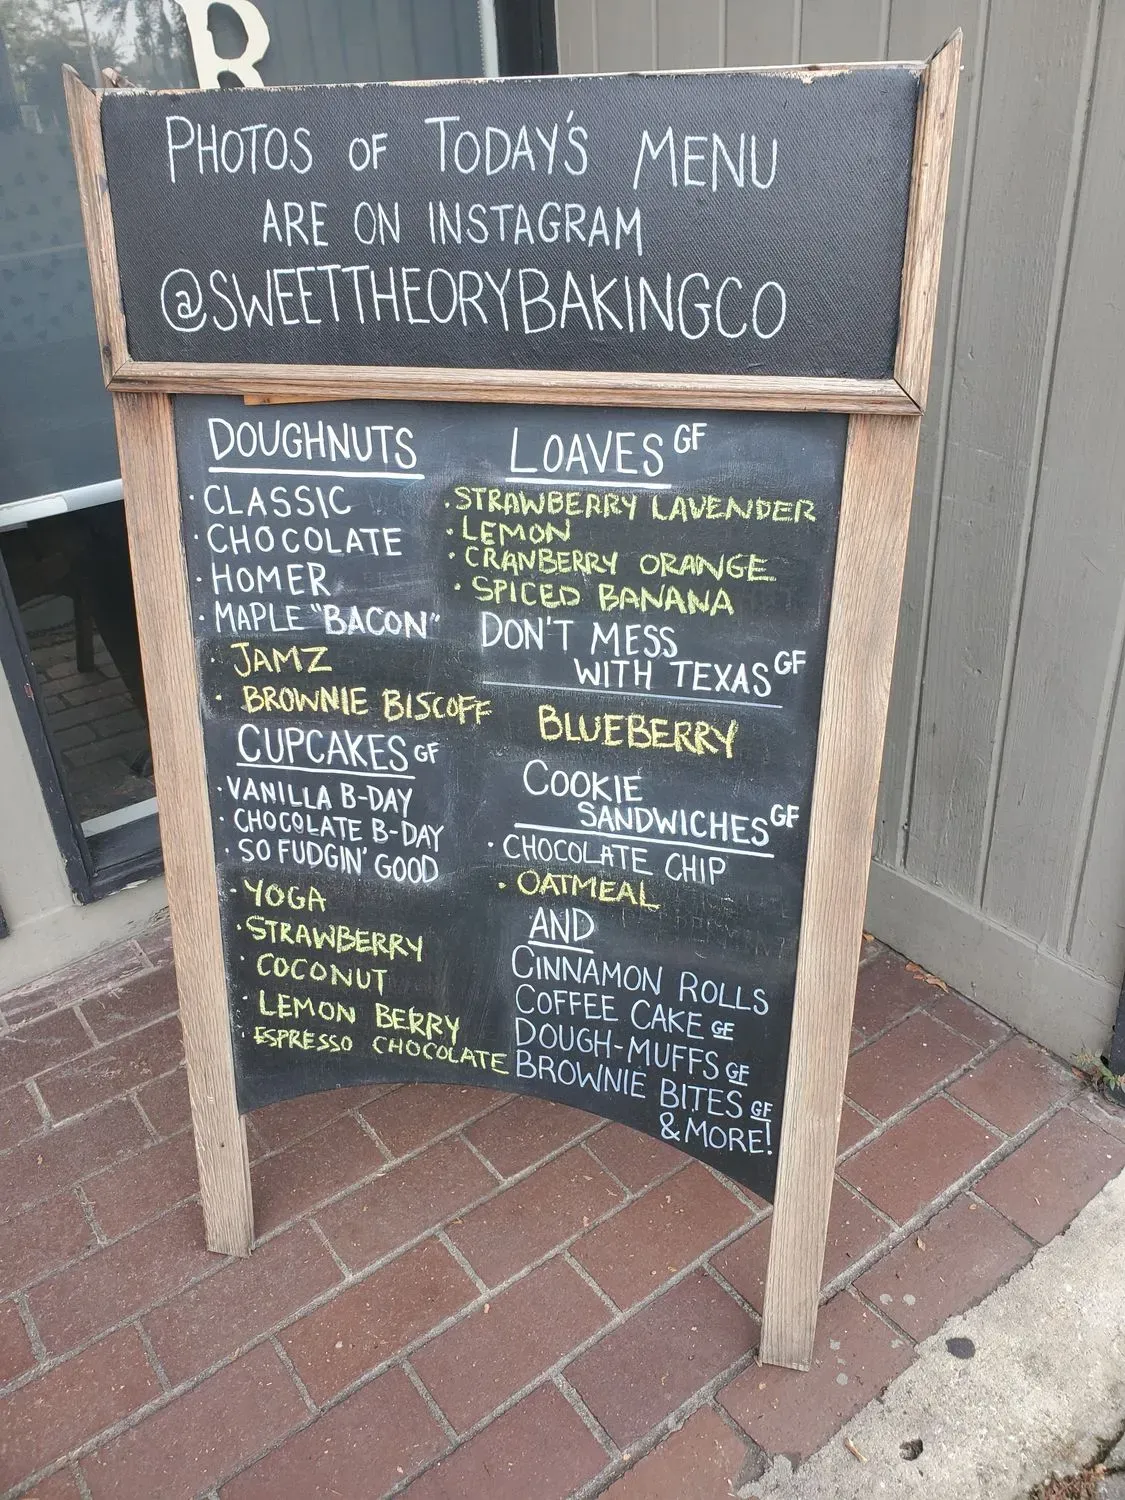 R
PHOTOS OF TODAY'S MENU
ARE ON INSTAGRAM
@SWEETTHEORYBAKINGCO
DOUGHNUTS
· CLASSIC
· CHOCOLATE
· HOMER
· MAPLE "BACON"
· JAMZ
· BROWNIE BISCOFF
CUPCAKES GF
· VANILLA B-DAY
· CHOCOLATE B-DAY
· SO FUDGIN' GOOD
· YOGA
· STRAWBERRY
· COCONUT
· LEMON BERRY
· ESPRESSO CHOCOLATE
LOAVES GF
· STRAWBERRY LAVENDER
· LEMON
· CRANBERRY ORANGE
· SPICED BANANA
DON'T MESS
WITH TEXAS GF
BLUEBERRY
COOKIE
SANDWICHES GF
· CHOCOLATE CHIP
· OATMEAL
AND
CINNAMON ROLLS
COFFEE CAKE GF
DOUGH-MUFFS GF
BROWNIE BITES GF
& MORE!